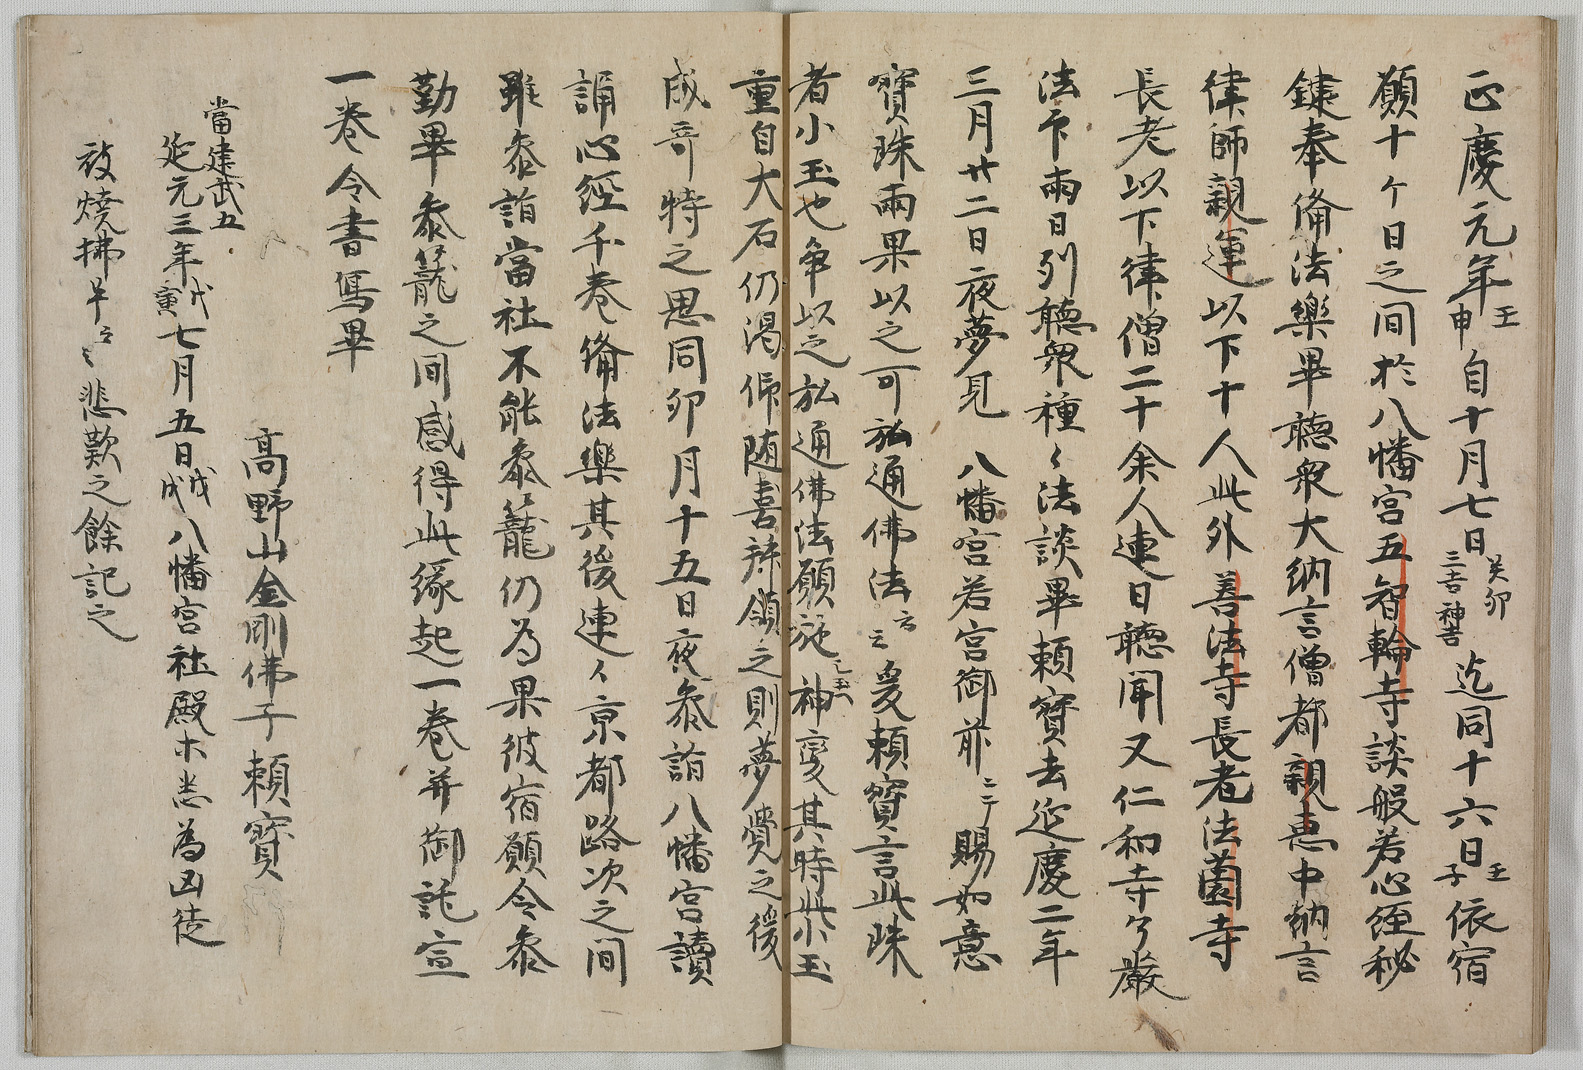 正慶元年壬申自十月七日癸卯三吉神吉迄同十六日壬子依宿
願十ケ日之間於八幡宮五智輪寺談般若心経秘
鍵奉備法樂畢聴衆大納言僧都親恵中納言
律師親運以下十人此外善法寺長老法薗寺
長老以下律僧二十余人連日聴聞又仁和寺了嚴
法印兩日列聴衆種々法談畢頼寳去延慶二年
三月廿二日夜夢見八幡宮若宮御前ニテ賜如意
寳珠兩果以之可弘通佛法云云爰頼寳言此珠
者小玉也争以之弘通佛法願施神變其時此小玉
重自大石仍渇仰随喜拜領之則夢覺之後
成奇特之思同卯月十五日夜参詣八幡宮讀
誦心經千卷備法樂其後連々京都路次之間
雖参詣當社不能参籠仍為果彼宿願令参
勤畢参籠之間感得此縁起一卷并御託宣
一卷令書寫畢
高野山金剛佛子頼寳
當建武五
延元三年戊寅七月五日戊戌八幡宮社殿木悉為凶徒
被焼拂早云々悲歎之餘記之